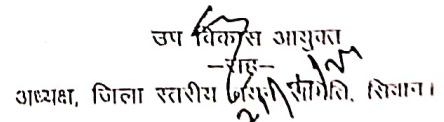 उप विकास आयुक्त
–सह–
अध्यक्ष, जिला स्तरीय समिति, सिवान।